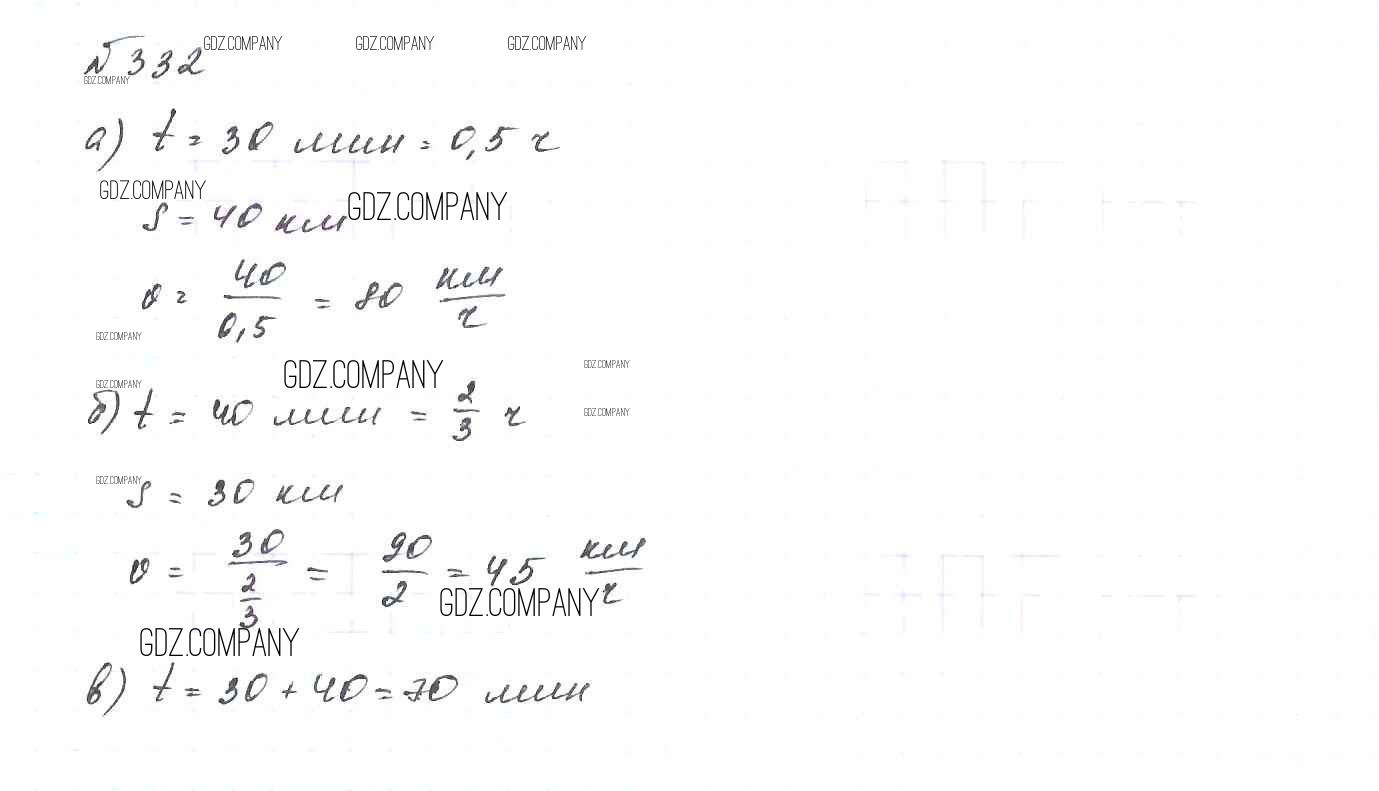 GDZ.COMPANY GDZ.COMPANY GDZ.COMPANY
№ 332
GDZ.COMPANY
а) t = 30 мин = 0,5 ч
GDZ.COMPANY GDZ.COMPANY
S = 40 км
v = 40/0,5 = 80 км/ч
GDZ.COMPANY
GDZ.COMPANY GDZ.COMPANY
GDZ.COMPANY
б) t = 40 мин = 2/3 ч
GDZ.COMPANY
GDZ.COMPANY
S = 30 км
v = 30/(2/3) = 90/2 = 45 км/ч
GDZ.COMPANY
GDZ.COMPANY
в) t = 30 + 40 = 70 мин